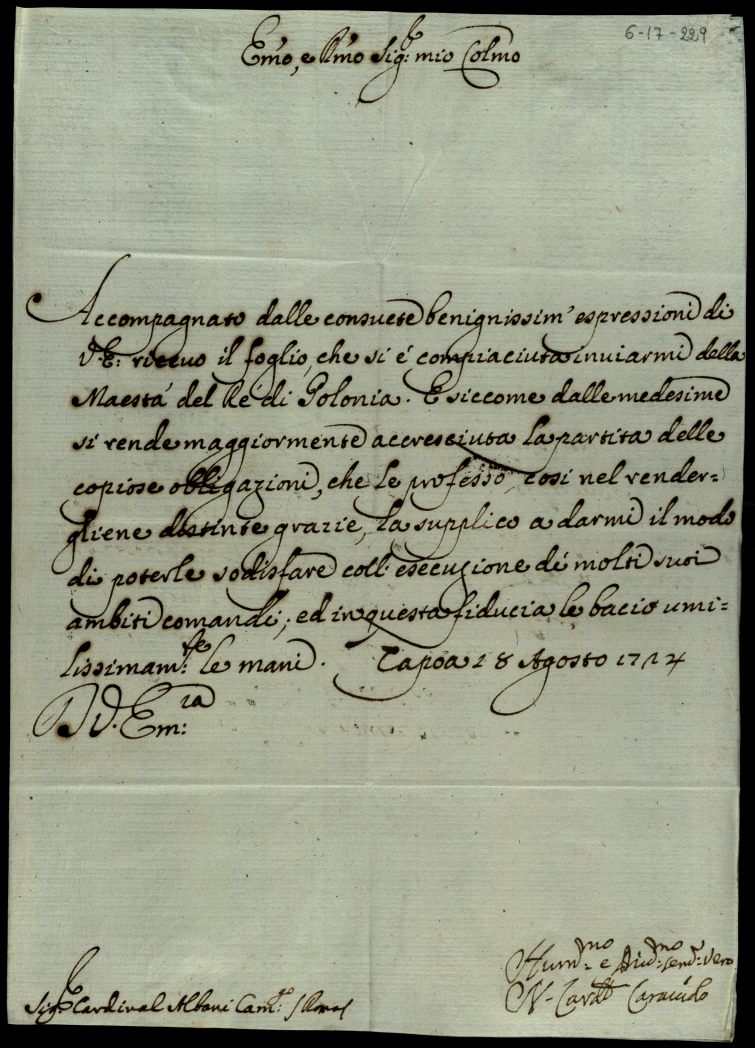 6-17-229
Em̃o, e Rm̃o Sig.r mio Colmo
Accompagnato dalle consuete benignissim' espressioni di
V.E: ricevo il foglio, che si é compiaciuta inuiarmi della
Maestá del Re di Polonia. E siccome dalle medesime
si rende maggiormente accresciuta la partita delle
copiose obbligazioni, che le professo, cosi nel render=
gliene distinte grazie, la supplico a darmi il modo
di poterle sodisfare coll' esecuzione dé molti suoi
ambiti comandi; ed in questa fiducia le bacio umi=
lissimam.te le mani. Capoa 28 Agosto 1724
D V. Em:ia
Hum:mo e Diu:mo Seru:r Vero
Sig.r Cardinal Albani Cam.go /Roma/
N. Card.l Caracciolo